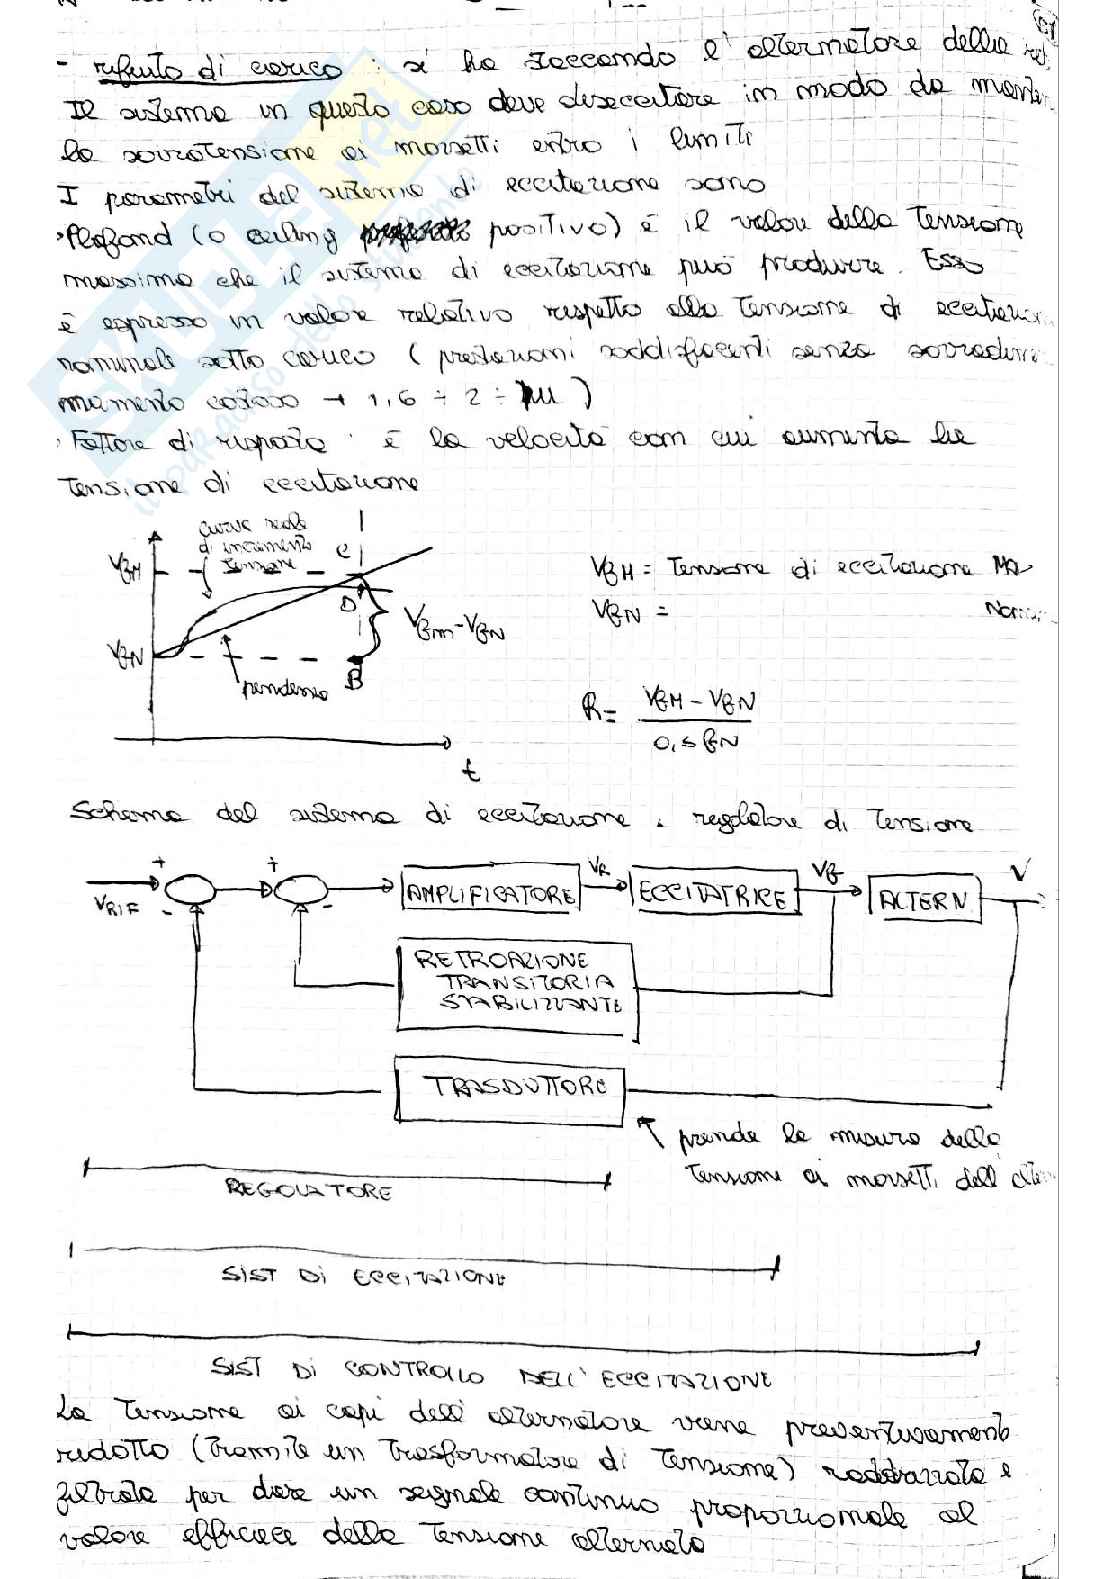 - rifiuto di carico : si ha staccando l'alternatore dalla
Il sistema in questo caso deve diseccitare in modo da
la sovratensione ai morsetti entro i limiti
I parametri del sistema di eccitazione sono
Plafond (o ceiling positivo) è il valore della tensione
massima che il sistema di eccitazione può produrre. Esso
è espresso in valore relativo rispetto alla tensione di
nominale sotto carico (prestazioni soddisfacenti senza
costoso → 1,6 ÷ 2 ÷
· Fattore di risposta : è la velocità con cui aumenta la
tensione di eccitazione
curva reale
di incremento
tensione
VfM
C
D
VfM - VfN
VfN
B
pendenza
t
VfM = Tensione di eccitazione
VfN =
R = VfM - VfN
0,5 fN
Schema del sistema di eccitazione . regolatore di tensione
+ + VR Vf V
VRIF - - AMPLIFICATORE ECCITATRICE ALTERN
RETROAZIONE
TRANSITORIA
STABILIZZANTE
TRASDUTTORE
prende la misura della
tensione ai morsetti dell'
REGOLATORE
SIST DI ECCITAZIONE
SIST DI CONTROLLO DELL'ECCITAZIONE
La tensione ai capi dell'alternatore viene preventivamente
ridotta (tramite un trasformatore di tensione) raddrizzata e
filtrata per dare un segnale continuo proporzionale al
valore efficace della tensione alternata